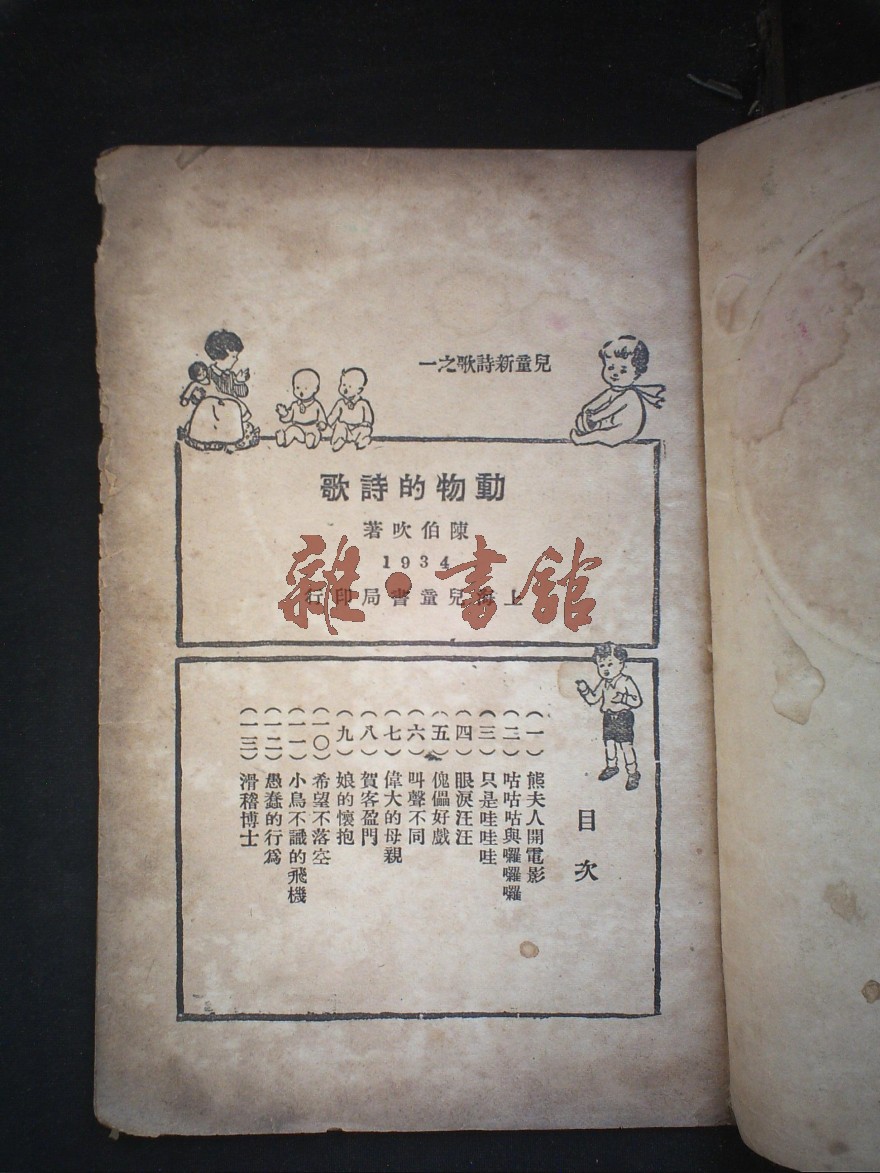 兒童新詩歌之一
動物的詩歌
陳伯吹著
1934
上海兒童書局印行
雜·書館
目次
(一)熊夫人開電影
(二)咕咕咕與囉囉囉
(三)只是哇哇哇
(四)眼淚汪汪
(五)傀儡好戲
(六)叫聲不同
(七)偉大的母親
(八)賀客盈門
(九)娘的懷抱
(一〇)希望不落空
(一一)小鳥不識的飛機
(一二)愚蠢的行爲
(一三)滑稽博士